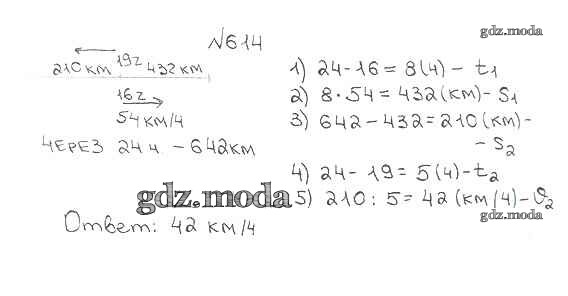 N614
gdz.moda
19г
210 км 432 км
16г
54 км/ч
ЧЕРЕЗ 24 ч. – 642 км
1) 24 - 16 = 8 (ч) - t₁
2) 8 · 54 = 432 (км) - S₁
3) 642 - 432 = 210 (км) -
- S₂
4) 24 - 19 = 5 (ч) - t₂
gdz.moda
5) 210 : 5 = 42 (км/ч) - υ₂
gdz.moda
Ответ: 42 км/ч